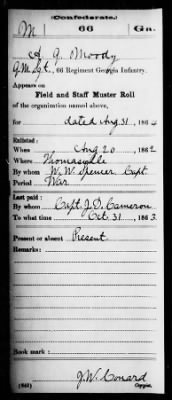 (Confederate.)
M 66 Ga.
A. J. Moody
Q.M. Sgt., 66 Regiment Georgia Infantry.
Appears on
Field and Staff Muster Roll
of the organization named above,
for dated Aug 31, 1864
Enlisted:
When Aug 20, 1862
Where Thomasville
By whom W. W. Spencer Capt
Period War
Last paid:
By whom Capt. J. D. Cameron
To what time Oct. 31, 1863
Present or absent Present
Remarks:
Book mark:
J. W. Conard
(642) Copyist.